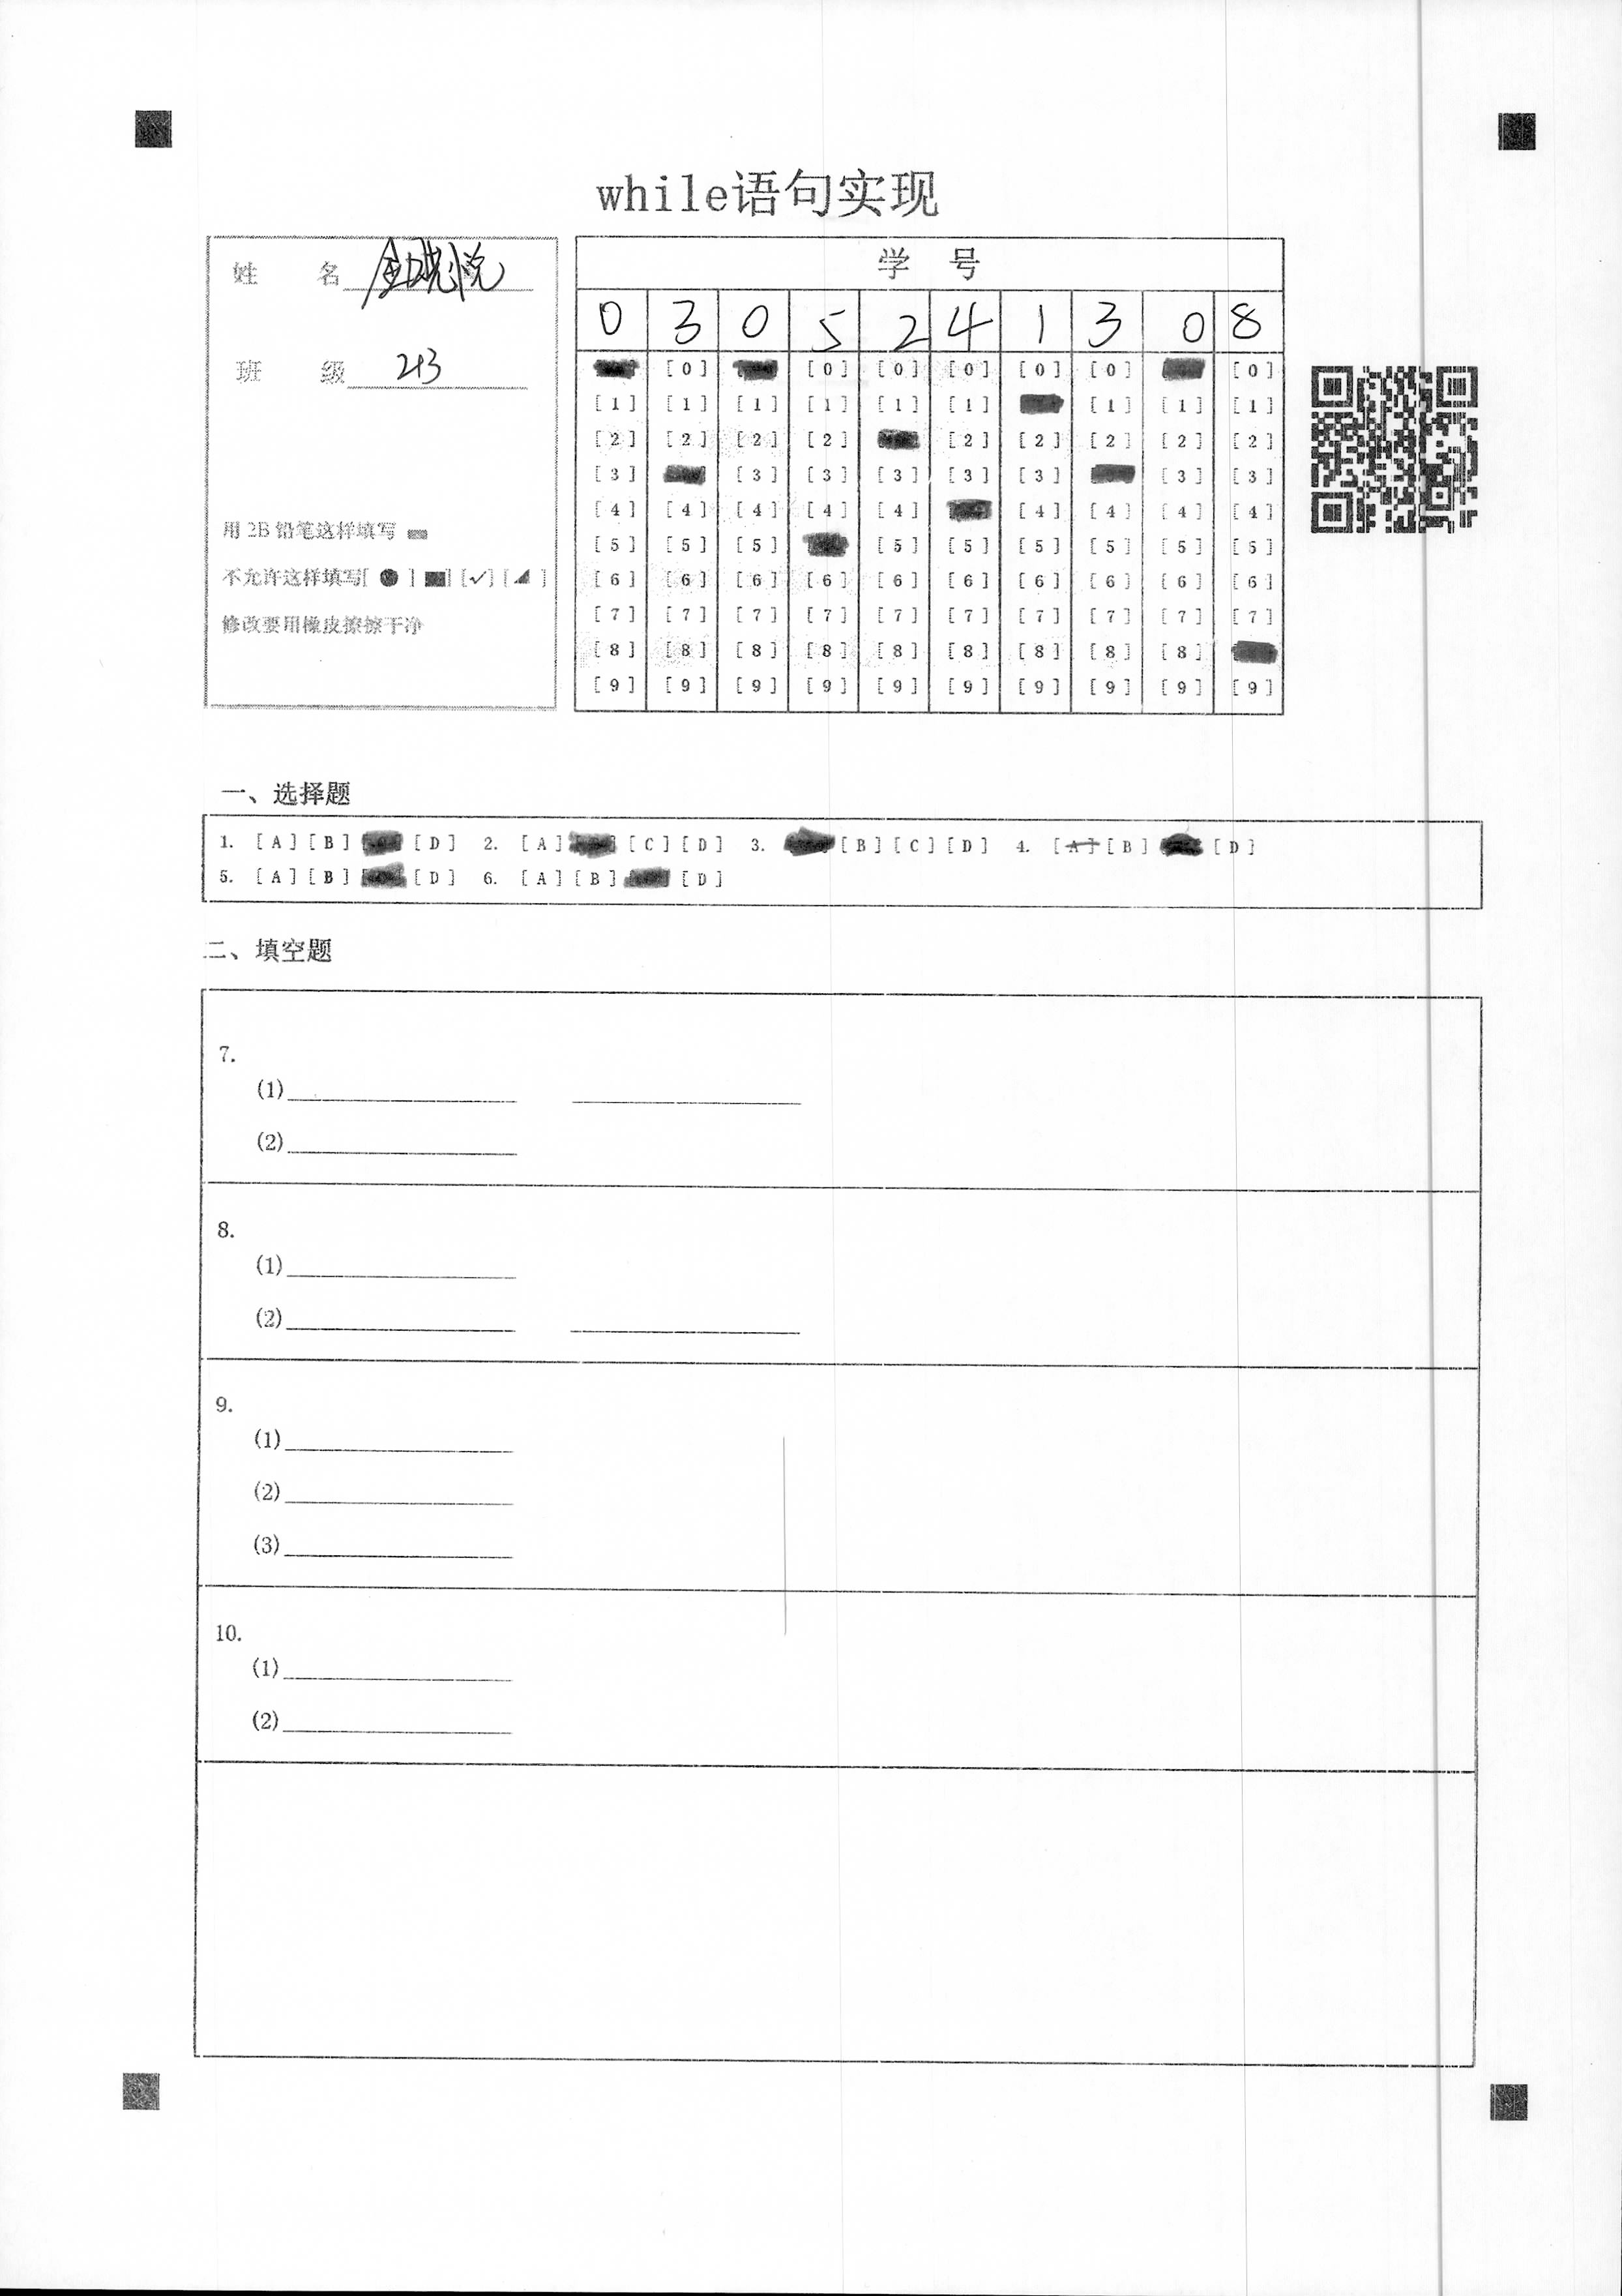 while语句实现
姓 名 金晓悦
班 级 213
用 2B 铅笔这样填写
不允许这样填写[ ● ] [■] [✓] [◢ ]
修改要用橡皮擦擦干净
学 号
0 3 0 5 2 4 1 3 0 8
[0] [0] [0] [0] [0] [0] [0]
[1] [1] [1] [1] [1] [1] [1] [1] [1]
[2] [2] [2] [2] [2] [2] [2] [2] [2]
[3] [3] [3] [3] [3] [3] [3] [3]
[4] [4] [4] [4] [4] [4] [4] [4] [4]
[5] [5] [5] [5] [5] [5] [5] [5] [5]
[6] [6] [6] [6] [6] [6] [6] [6] [6] [6]
[7] [7] [7] [7] [7] [7] [7] [7] [7] [7]
[8] [8] [8] [8] [8] [8] [8] [8] [8]
[9] [9] [9] [9] [9] [9] [9] [9] [9] [9]
一、选择题
1. [A] [B] [D] 2. [A] [C] [D] 3. [B] [C] [D] 4. [A] [B] [D]
5. [A] [B] [D] 6. [A] [B] [D]
二、填空题
7.
(1)
(2)
8.
(1)
(2)
9.
(1)
(2)
(3)
10.
(1)
(2)